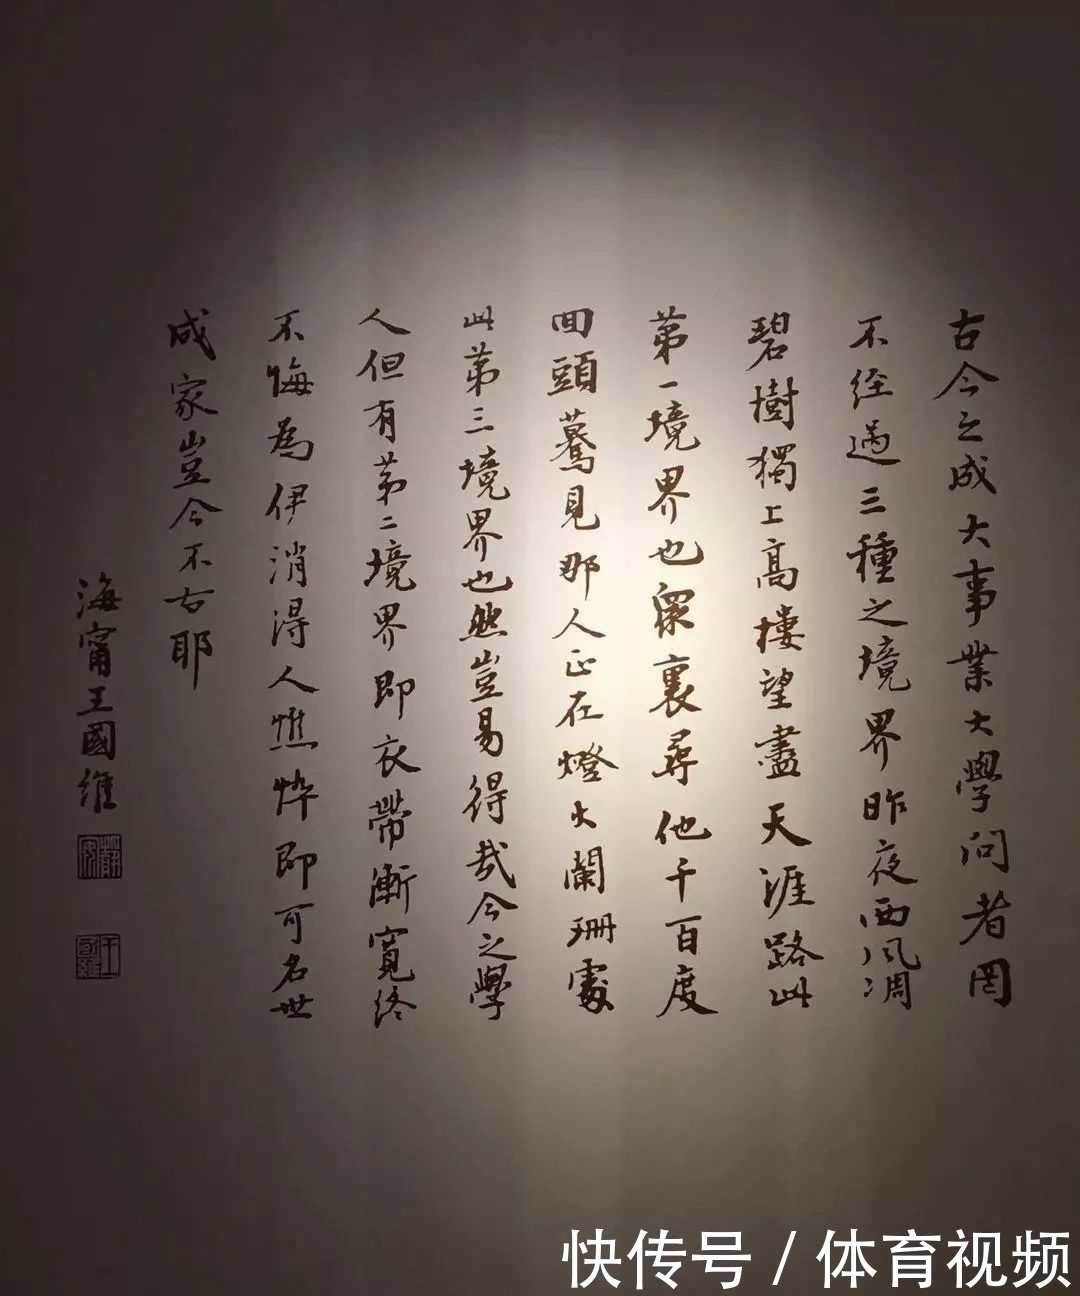 古今之成大事業大學問者罔
不经過三種之境界昨夜西風凋
碧樹獨上高樓望盡天涯路此
第一境界也衆裏尋他千百度
回頭驀見那人正在燈火闌珊處
此第三境界也然豈易得哉今之學
人但有第二境界即衣帶漸寬终
不悔為伊消得人憔悴即可名世
成家豈今不古耶
海甯王國維
靜安
快传号 / 体育视频